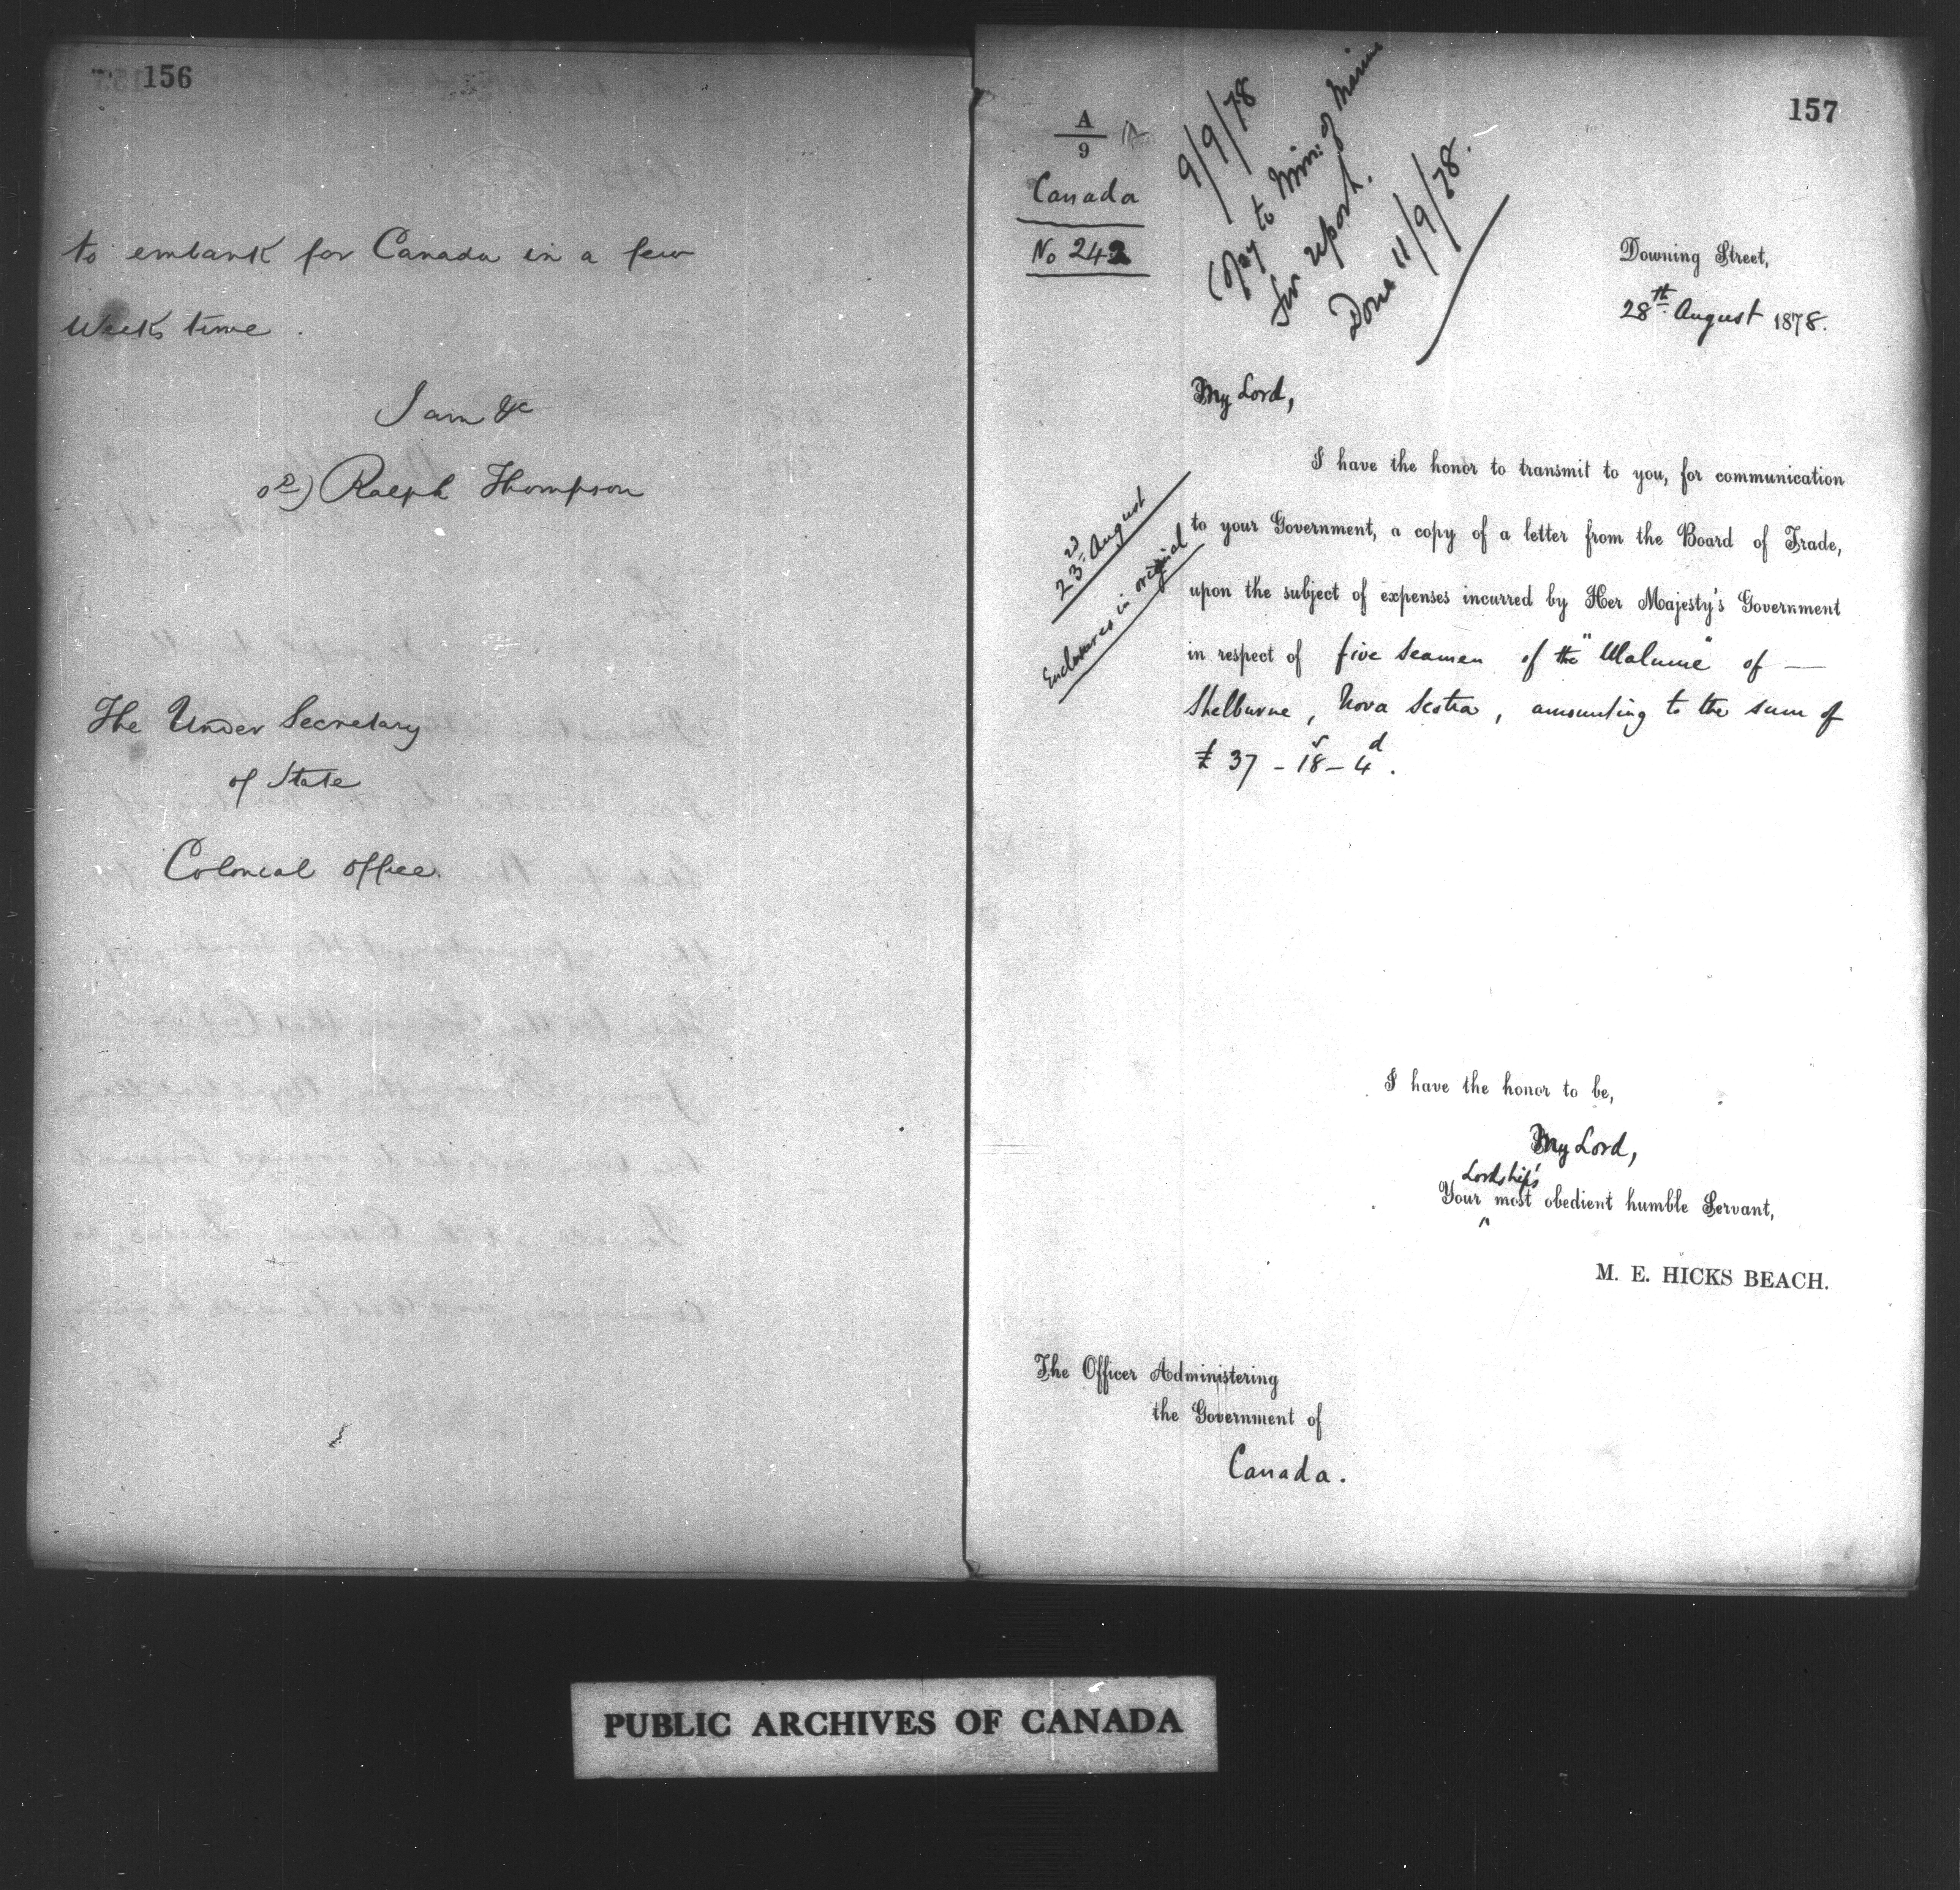 156
to embark for Canada in a few
Weeks time.
I am &c
Ralph Thompson
The Under Secretary
of State
Colonial Office.
157
A
9
Canada
No 242
9/9/78
Copy to Min: of Marine
for report.
Done 11/9/78.
Downing Street,
28th August 1878.
My Lord,
23rd August
Enclosures in original
I have the honor to transmit to you, for communication
to your Government, a copy of a letter from the Board of Trade,
upon the subject of expenses incurred by Her Majesty's Government
in respect of five Seamen of the of —
Shelburne, Nova Scotia, amounting to the sum of
£37-18s-4d.
I have the honor to be,
My Lord,
Lordship's
Your most obedient humble Servant,
M. E. HICKS BEACH.
The Officer Administering
the Government of
Canada.
PUBLIC ARCHIVES OF CANADA